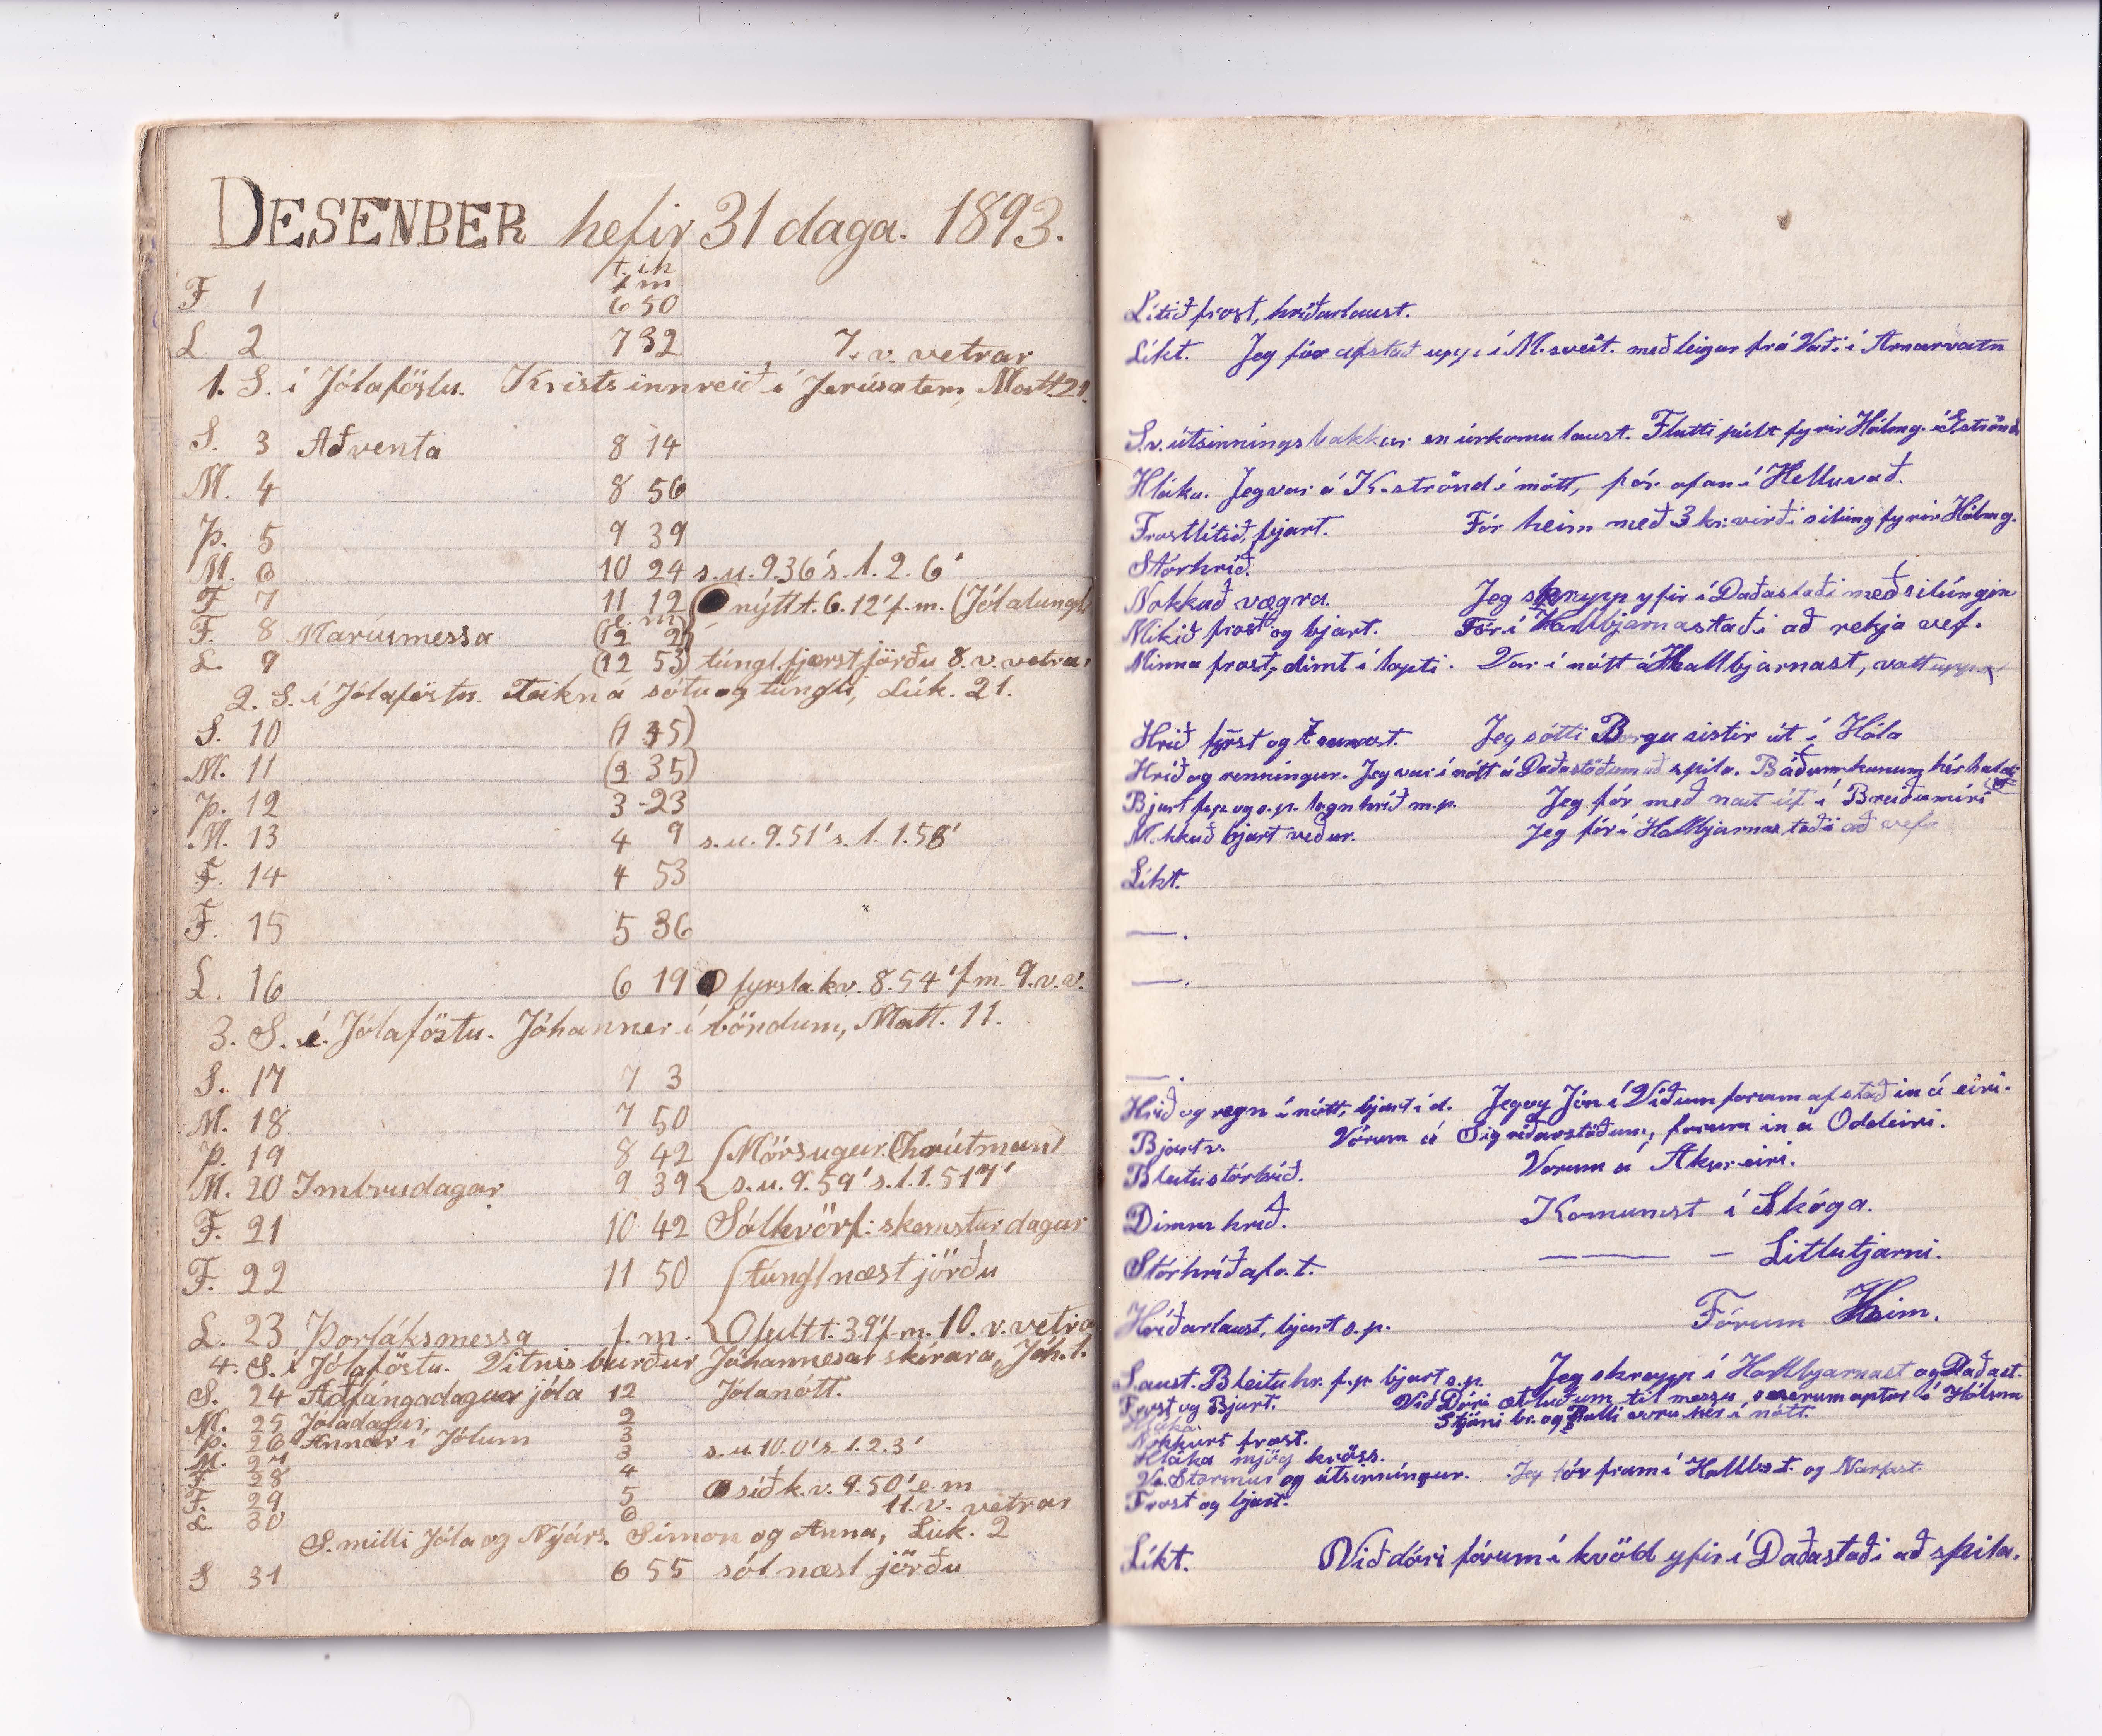 DESENBER hefir 31 daga. 1893.
t. í. h
f m
F 1 6 50
L 2 7 32 7. v. vetrar
1. S. í Jólaföstu. Krists innreið í Jerúsalem, Matt. 21.
S. 3 Aðventa 8 14
M. 4 8 56
Þ. 5 9 39
M. 6 10 24 s. u. 9.36's. l. 2. 6'
F 7 11 12 nýtt t. 6. 12' f. m. (Jólatúngl)
e. m
F. 8 Maríumessa (12 2)
L. 9 (12 53) túngl fjærst jörðu 8. v. vetrar
2. S. í Jólaföstu. Teikn á sólu og túngli, Lúk. 21.
S. 10 (1 45)
M. 11 (2 35)
Þ. 12 3 23
M. 13 4 9 s. u. 9. 51' s. l. 1. 58'
F. 14 4 53
F. 15 5 36
L. 16 6 19 fyrsta kv. 8. 54' f m. 9. v. v.
3. S. í Jólaföstu. Jóhannes í böndum, Matt. 11.
S. 17 7 3
M. 18 7 50
Þ. 19 8 42 (Mörsugur. (hrútmán)
M. 20 Imbrudagar 9 39 s. u. 9. 59' s. l. 1. 57'
F. 21 10 42 Sólhvörf: skemstur dagur
F. 22 11 50 túngl næst jörðu
L. 23 Þorláksmessa f. m. fullt t. 3. 9' f. m. 10. v. vetrar
4. S. í Jólaföstu. Vitnisburður Jóhannesar skírara, Jóh. 1.
S. 24 Aðfángadagur jóla 12 Jólanótt.
M. 25 Jóladagur 2
Þ. 26 Annar í Jólum 3
M. 27 3 s. u. 10. 0' s. l. 2. 3'
F 28 4
F. 29 5 síð. k. v. 9. 50' e. m
L. 30 6 11. v. vetrar
S. milli Jóla og Nýárs. Símon og Anna, Lúk. 2
S 31 6 55 sól næst jörðu
Lítið frost, hríðarlaust.
Líkt. Jeg fór afstað upp í M.sveit. með leigur frá Vaði í Arnarvatn
S.v. útsinnings bakkar en úrkomulaust. Flutti púlt fyrir Hólmg. í K.strönd
Hláka. Jeg var á K.strönd í nótt, fór ofan í Helluvað.
Frostlítið, bjart. Fór heim með 3 kr. virði silúng fyrir Hólmg.
Stórhríð.
Nokkuð vægra. Jeg skrapp yfir í Daðastaði með silúngin
Mikið frost og bjart. Fór í Hallbjarnastaði að rekja vef.
Minna frost, dimt í lopti. Var í nótt á Hallbjarnast, vatt uppá
Hríð fyrst og seinast. Jeg sótti Borgu sistir út í Hóla
Hríð og renningur. Jeg var í nótt á Daðastöðum að spila. Báðum konum hér
Bjart f.p. og s.p. logn hríð m.p. Jeg fór með naut út í Breiðumíri
Nokkuð bjart veður. Jeg fór í Hallbjarnastaði að vefa
Líkt.
—.
—.
—.
Hríð og regn í nótt, bjart í d. Jeg og Jón í Víðum forum af stað in á eiri.
Bjart v. Vórum á Sigríðarstöðum, forum in á Oddeiri.
Bleitustórhríð. Vorum á Akureiri.
Dimm hríð. Komumst í Skóga.
Stórhríð af a. t. — — Litlutjarni.
Hríðarlaust, bjart s. p. Fórum Heim.
S.aust. Bleituhr. f. p. bjart s. p. Jeg skrapp í Hallbjarnast og Daðast.
Frost og Bjart. Við Dóri ætluðum til messu, snerum aptur í Hólum
Hláka. Stjáni br. og Palli voru hér í nótt.
Nokkurt frost.
Hláka mjög hvöss.
Va. Stormur og útsinníngur. Jeg fór fram í Hallbst. og Narfast.
Frost og bjart.
Líkt. Við dóri fórum í kvöld yfir í Daðastaði að spila.